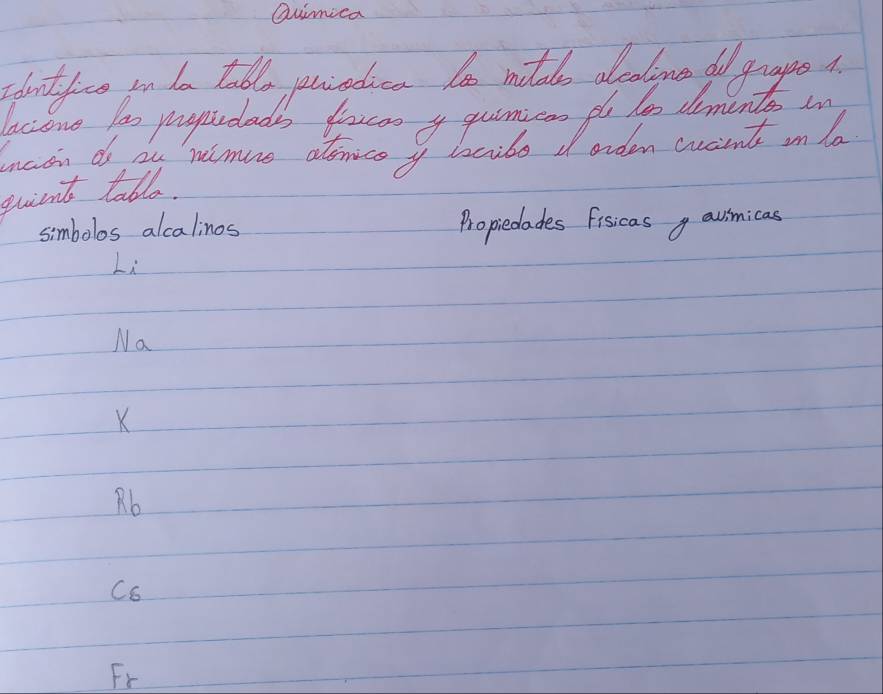 Química
Identifico en la tabla periodica los metales alcalinos del grupo 1.
laciono las propiedades físicas y químicas de los elementos en
unción de su número atómico y escribo el orden creciente en la
guiente tabla.
símbolos alcalinos Propiedades Físicas y químicas
Li
Na
K
Rb
Cs
Fr